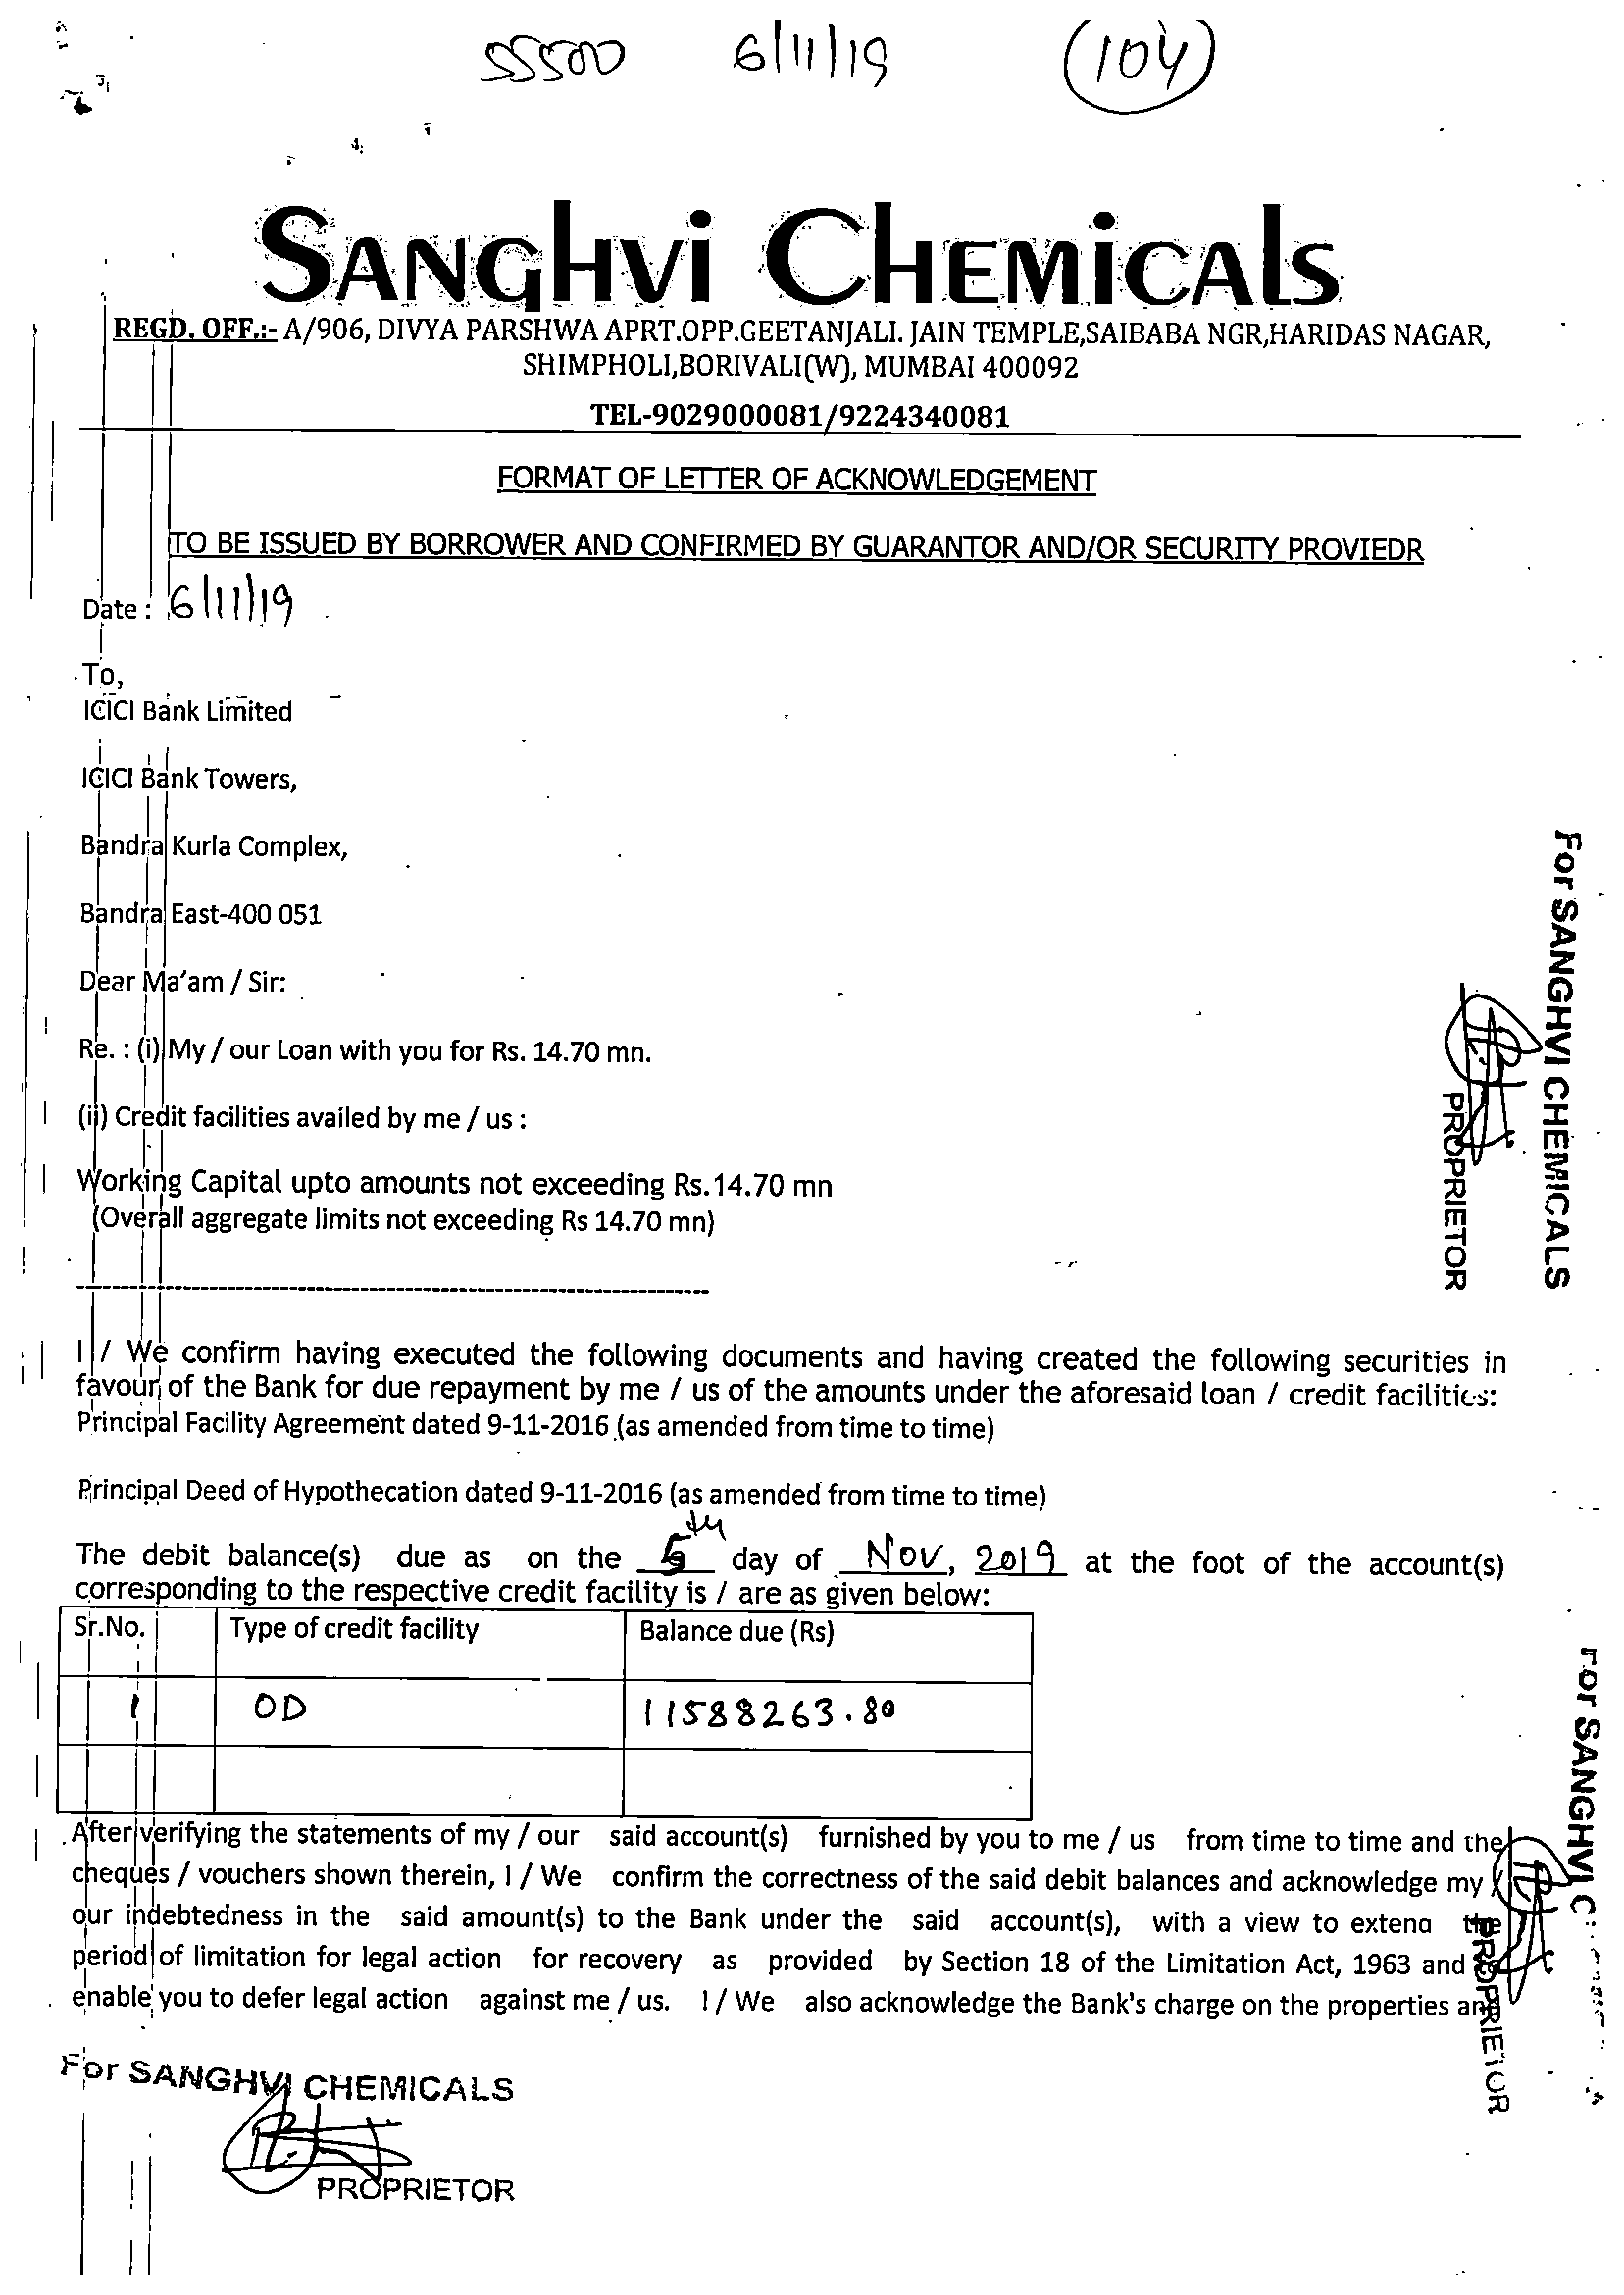 55500 6/11/19 (104)
SANGHVI CHEMICALS
REGD. OFF.:- A/906, DIVYA PARSHWA APRT.OPP.GEETANJALI. JAIN TEMPLE,SAIBABA NGR,HARIDAS NAGAR,
SHIMPHOLI,BORIVALI(W), MUMBAI 400092
TEL-9029000081/9224340081
FORMAT OF LETTER OF ACKNOWLEDGEMENT
TO BE ISSUED BY BORROWER AND CONFIRMED BY GUARANTOR AND/OR SECURITY PROVIEDR
Date : 6/11/19
To,
ICICI Bank Limited
ICICI Bank Towers,
Bandra Kurla Complex,
Bandra East-400 051
Dear Ma'am / Sir:
Re. : (i) My / our Loan with you for Rs. 14.70 mn.
(ii) Credit facilities availed by me / us :
Working Capital upto amounts not exceeding Rs.14.70 mn
(Overall aggregate limits not exceeding Rs 14.70 mn)
For SANGHVI CHEMICALS
PROPRIETOR
I / We confirm having executed the following documents and having created the following securities in
favour of the Bank for due repayment by me / us of the amounts under the aforesaid loan / credit facilities:
Principal Facility Agreement dated 9-11-2016 (as amended from time to time)
Principal Deed of Hypothecation dated 9-11-2016 (as amended from time to time)
The debit balance(s) due as on the 5th day of Nov, 2019 at the foot of the account(s)
corresponding to the respective credit facility is / are as given below:
Sr.No. Type of credit facility Balance due (Rs)
1 OD 11588263.80
After verifying the statements of my / our said account(s) furnished by you to me / us from time to time and the
cheques / vouchers shown therein, I / We confirm the correctness of the said debit balances and acknowledge my /
our indebtedness in the said amount(s) to the Bank under the said account(s), with a view to extend the
period of limitation for legal action for recovery as provided by Section 18 of the Limitation Act, 1963 and to
enable you to defer legal action against me / us. I / We also acknowledge the Bank's charge on the properties and
For SANGHVI C
PROPRIETOR
For SANGHVI CHEMICALS
PROPRIETOR